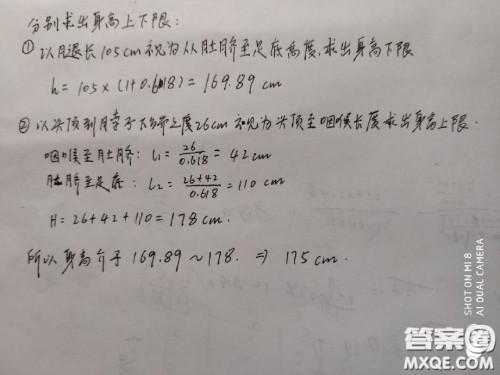 分别求出身高上下限:
① 以腿长105cm视为从肚脐至足底高度,求出身高下限
h = 105×(1+0.618) = 169.89 cm
② 以头顶到脖子下端之度26cm视为头顶至咽喉长度求出身高上限.
咽喉至肚脐: l₁ = 26/0.618 = 42 cm
肚脐至足底: l₂ = (26+42)/0.618 = 110 cm
H = 26+42+110 = 178 cm.
所以身高介于 169.89 ~ 178. ⇒ 175 cm.
SHOT ON MI 8
AI DUAL CAMERA
答案圈
MXQE.COM